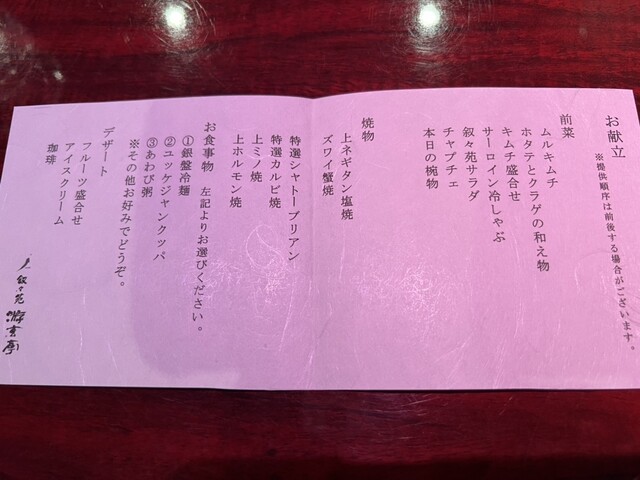 お献立
※提供順序は前後する場合がございます。
前菜
ムルキムチ
ホタテとクラゲの和え物
キムチ盛合せ
サーロイン冷しゃぶ
叙々苑サラダ
チャプチェ
本日の椀物
焼物
上ネギタン塩焼
ズワイ蟹焼
特選シャトーブリアン
特選カルビ焼
上ミノ焼
上ホルモン焼
お食事物 左記よりお選びください。
①銀盤冷麺
②ユッケジャンクッパ
③あわび粥
※その他お好みでどうぞ。
デザート
フルーツ盛合せ
アイスクリーム
珈琲
叙々苑 游玄亭